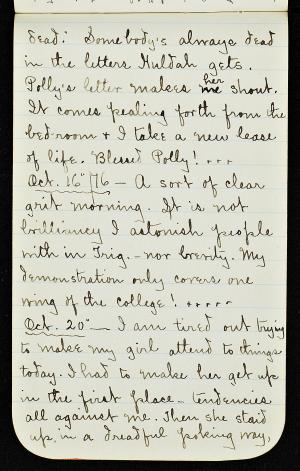 dead." Somebody's always dead
in the letters Huldah gets.
Polly's letter makes her shout.
It comes pealing forth from the
bedroom & I take a new lease
of life. Blessed Polly! ...
Oct. 16" '76 — A sort of clear
grit morning. It is not
brilliancy I astonish people
with in Trig. - nor brevity. My
demonstration only covers one
wing of the college! .....
Oct. 20" — I am tired out trying
to make my girl attend to things
today. I had to make her get up
in the first place - tendencies
all against me. Then she staid
up, in a dreadful poking way,